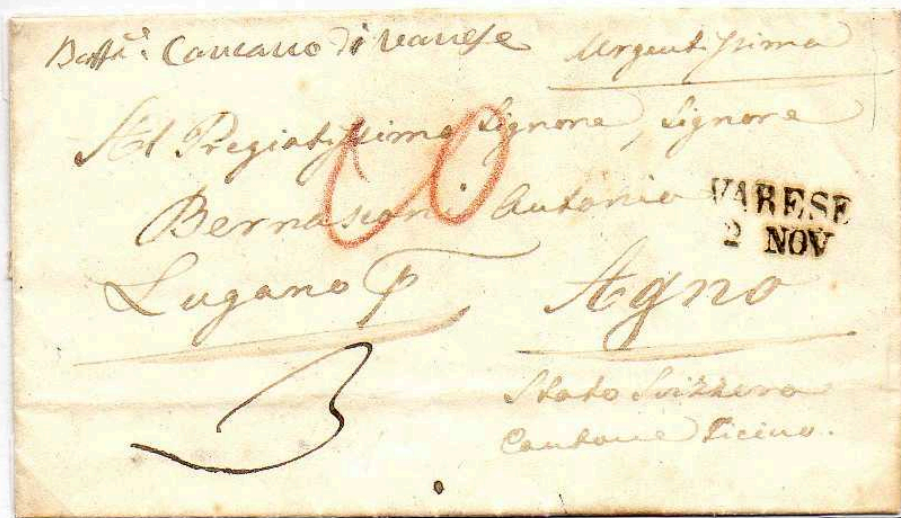 Batta. Cancano di Varese
Urgentissima
Al Pregiatissimo Signore, Signore
Bernasconi Antonio
VARESE
2 NOV
Lugano P Agno
Stato Svizzero
Cantone Ticino.
3